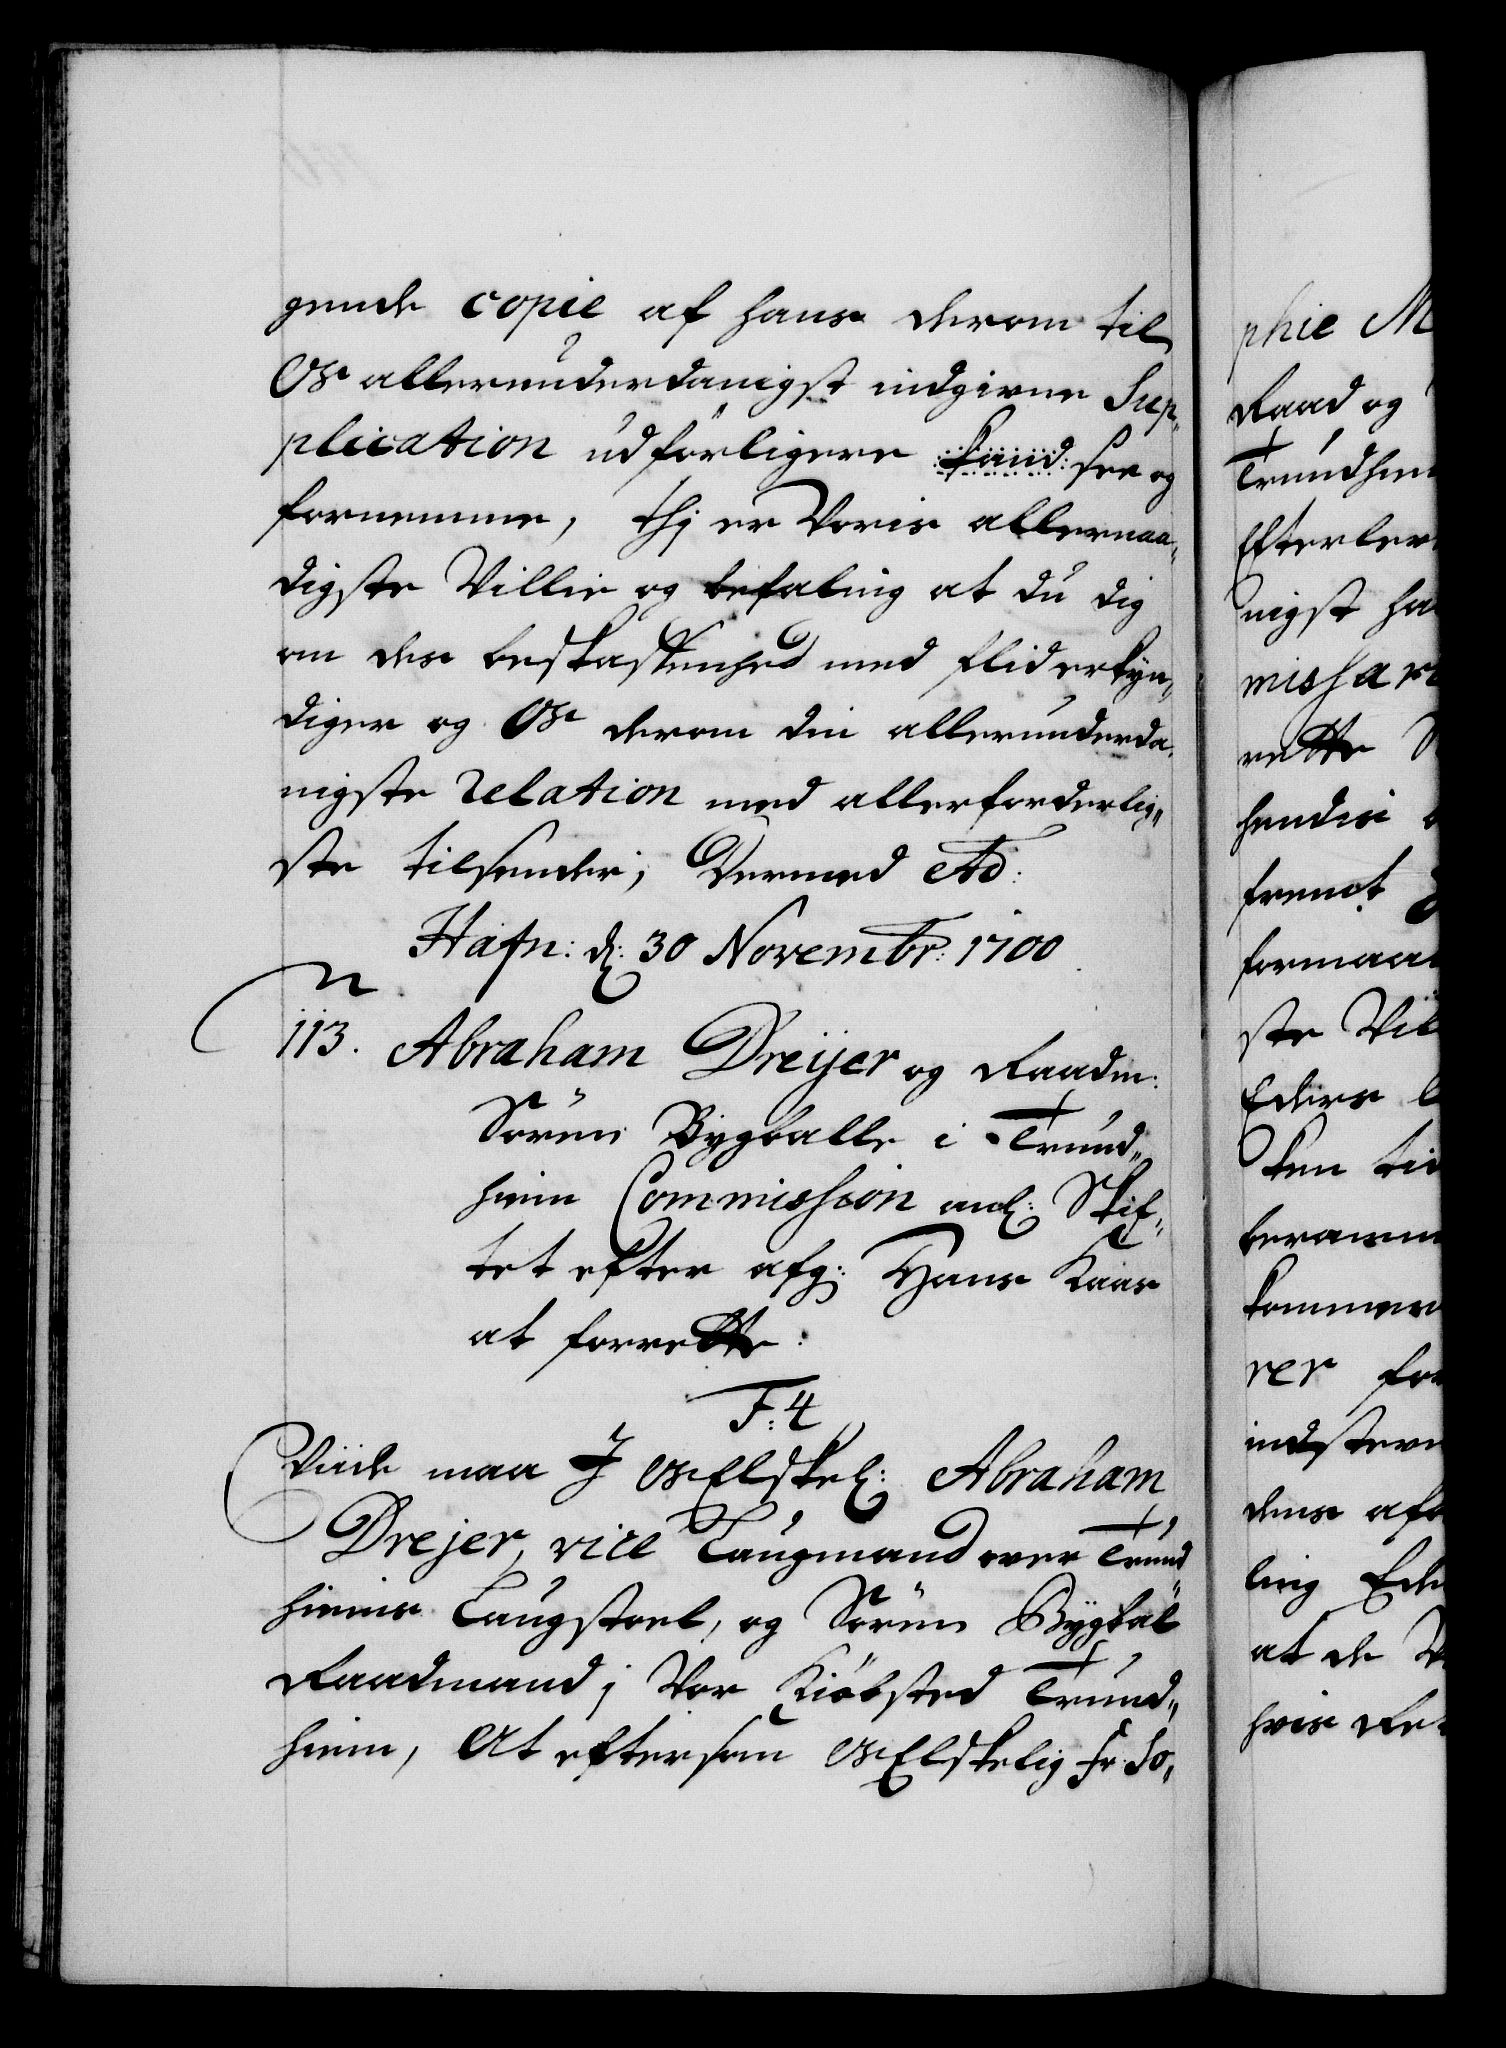 gende copie af hans derom til
Os allerunderdanigst indgivne Sup„
plication udførligere kand see og
fornemme, Thj er Voris allernaa„
digste Villie og befaling at du dig
om des beskaffenhed med flid erkyn„
diger og Os derom din allerunderda„
nigste relation med allerforderlig„
ste tilsender; Dermed etc:
Hafn: d: 30 Novembr: 1700.
n
113. Abraham Dreijer og Raadm:
Søren Bygballe i Trund„
hiem Commission anl: Skif„
tet efter afg: Hans Kaas
at forrette:
F: 4
Viide maa I Os Elskel: Abraham
Drejer, vice Laugmand over Trund
hiems Laugstoel, og Søren Bygbal
Raadmand j Vor Kiøbsted Trund„
hiem, At eftersom Os Elskelig Fr: So„
phie M
Raad og
Trundhiem
Efterlev
nigst ha
missari
rette S
hendis
fremt
formaa
ste Vil
Eders
ken tid
beramm
kommer
rer for
indstevn
dens afh
ling Ede
at de V
hvis Re